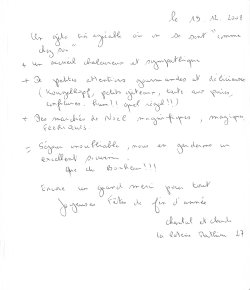 le 19.12.2008
Un gîte très agréable où on se sent "comme
chez soi"
+ Un accueil chaleureux et sympathique
+ De petites attentions gourmandes et délicieuses
(Kougelhopf, petits gâteaux, tarte aux poires,
confitures. Hum!! quel régal!!)
+ Des marchés de Noël magnifiques, magiques
féeriques.
= Séjour inoubliable, nous en garderons un
excellent souvenir.
Que du Bonheur!!!
Encore un grand merci pour tout
Joyeuses Fêtes de fin d'année
Chantal et Claude